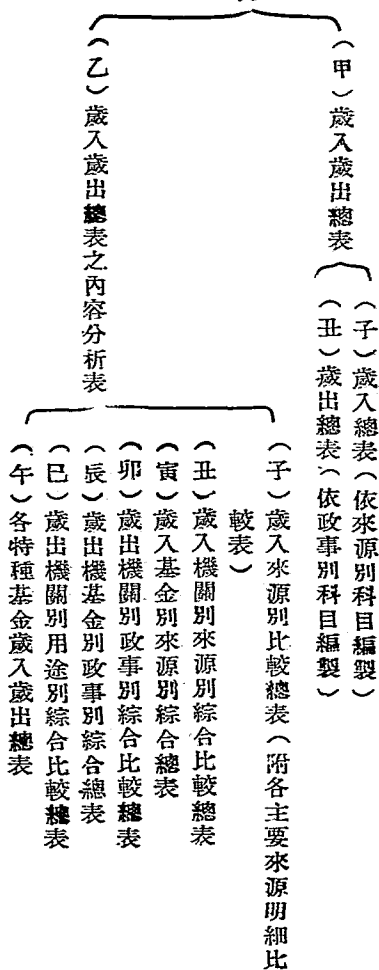 （甲）歲入歲出總表
（子）歲入總表（依來源別科目編製）
（丑）歲出總表（依政事別科目編製）
（乙）歲入歲出總表之內容分析表
（子）歲入來源別比較總表（附各主要來源明細比
較表）
（丑）歲入機關別來源別綜合比較總表
（寅）歲入基金別來源別綜合總表
（卯）歲出機關別政事別綜合比較總表
（辰）歲出機基金別政事別綜合總表
（巳）歲出機關別用途別綜合比較總表
（午）各特種基金歲入歲出總表